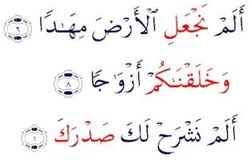 أَلَمْ نَجْعَلِ ٱلْأَرْضَ مِهَٰدًا ٦
وَخَلَقْنَٰكُمْ أَزْوَٰجًا ٨
أَلَمْ نَشْرَحْ لَكَ صَدْرَكَ ١